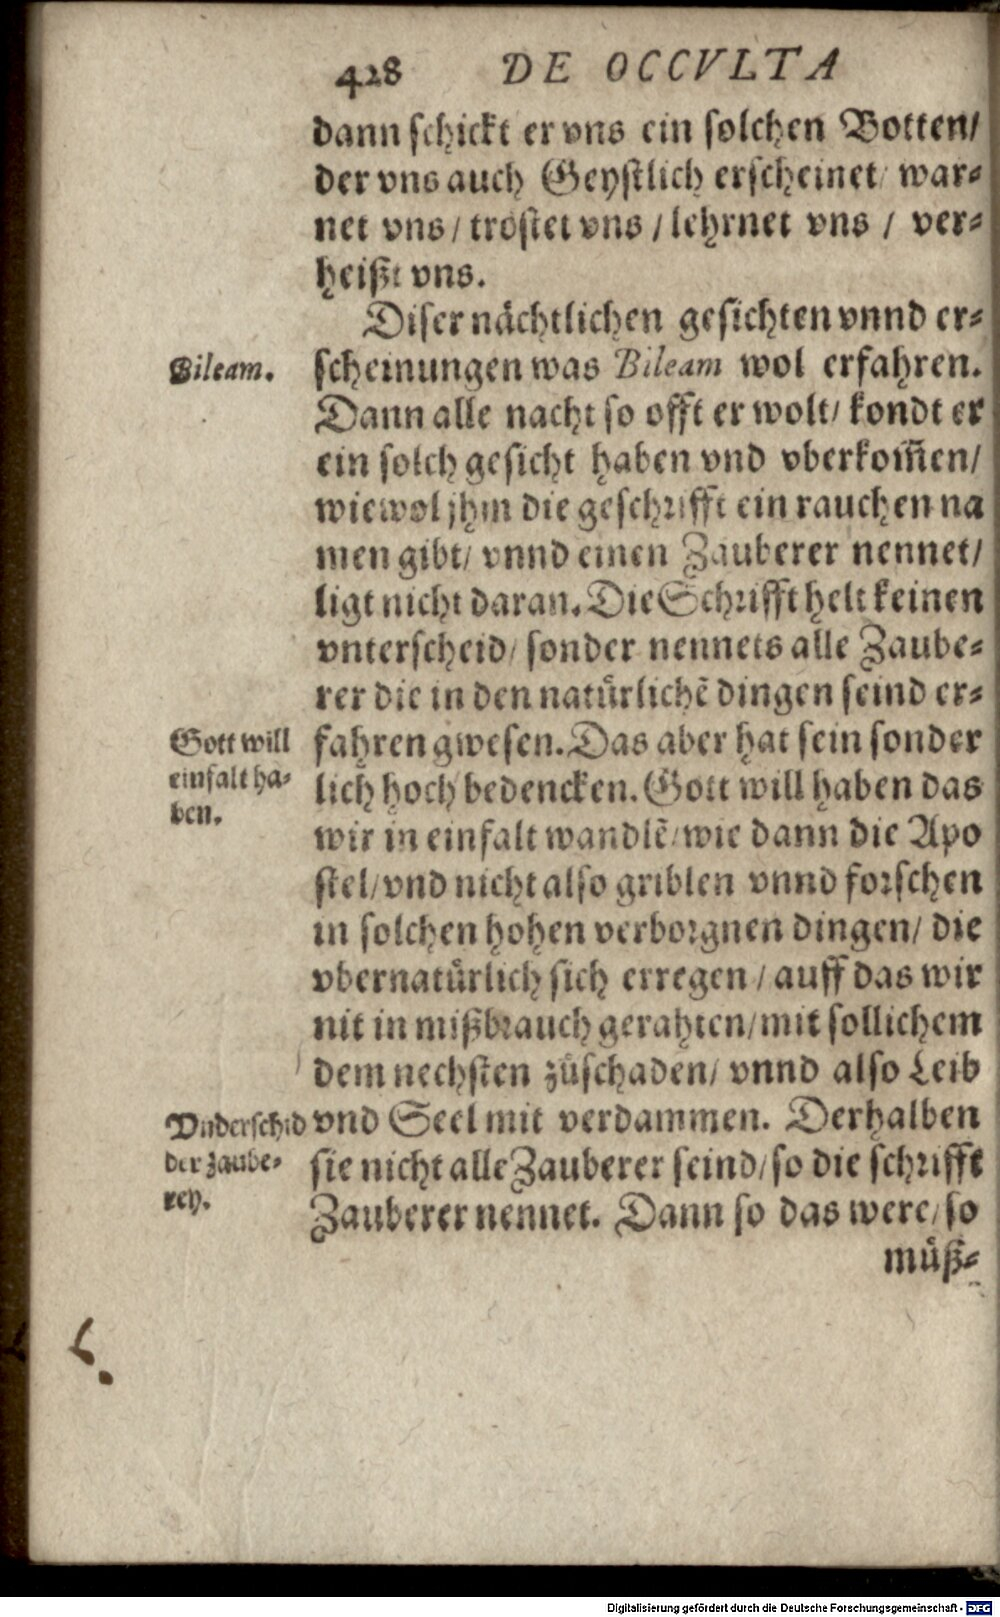 428 DE OCCVLTA
dann schickt er vns ein solchen Botten/
der vns auch Geystlich erscheinet/ war-
net vns/ tröstet vns/ lehrnet vns/ ver-
heißt vns.
Diser nächtlichen gesichten vnnd er-
Bileam.
scheinungen was Bileam wol erfahren.
Dann alle nacht so offt er wolt/ kondt er
ein solch gesicht haben vnd vberkom̃en/
wiewol jhm die geschrifft ein rauchen na
men gibt/ vnnd einen Zauberer nennet/
ligt nicht daran. Die Schrifft helt keinen
vnterscheid/ sonder nennets alle Zaube-
rer die in den natürlichẽ dingen seind er-
Gott will
einfalt ha-
ben.
fahren gwesen. Das aber hat sein sonder
lich hoch bedencken. Gott will haben das
wir in einfalt wandlẽ/ wie dann die Apo
stel/ vnd nicht also griblen vnnd forschen
in solchen hohen verborgnen dingen/ die
vbernatürlich sich erregen/ auff das wir
nit in mißbrauch gerahten/ mit sollichem
dem nechsten zůschaden/ vnnd also Leib
Vnderschid
der zaube-
rey.
vnd Seel mit verdammen. Derhalben
sie nicht alle Zauberer seind/ so die schrifft
Zauberer nennet. Dann so das were/ so
můß-
Digitalisierung gefördert durch die Deutsche Forschungsgemeinschaft - DFG